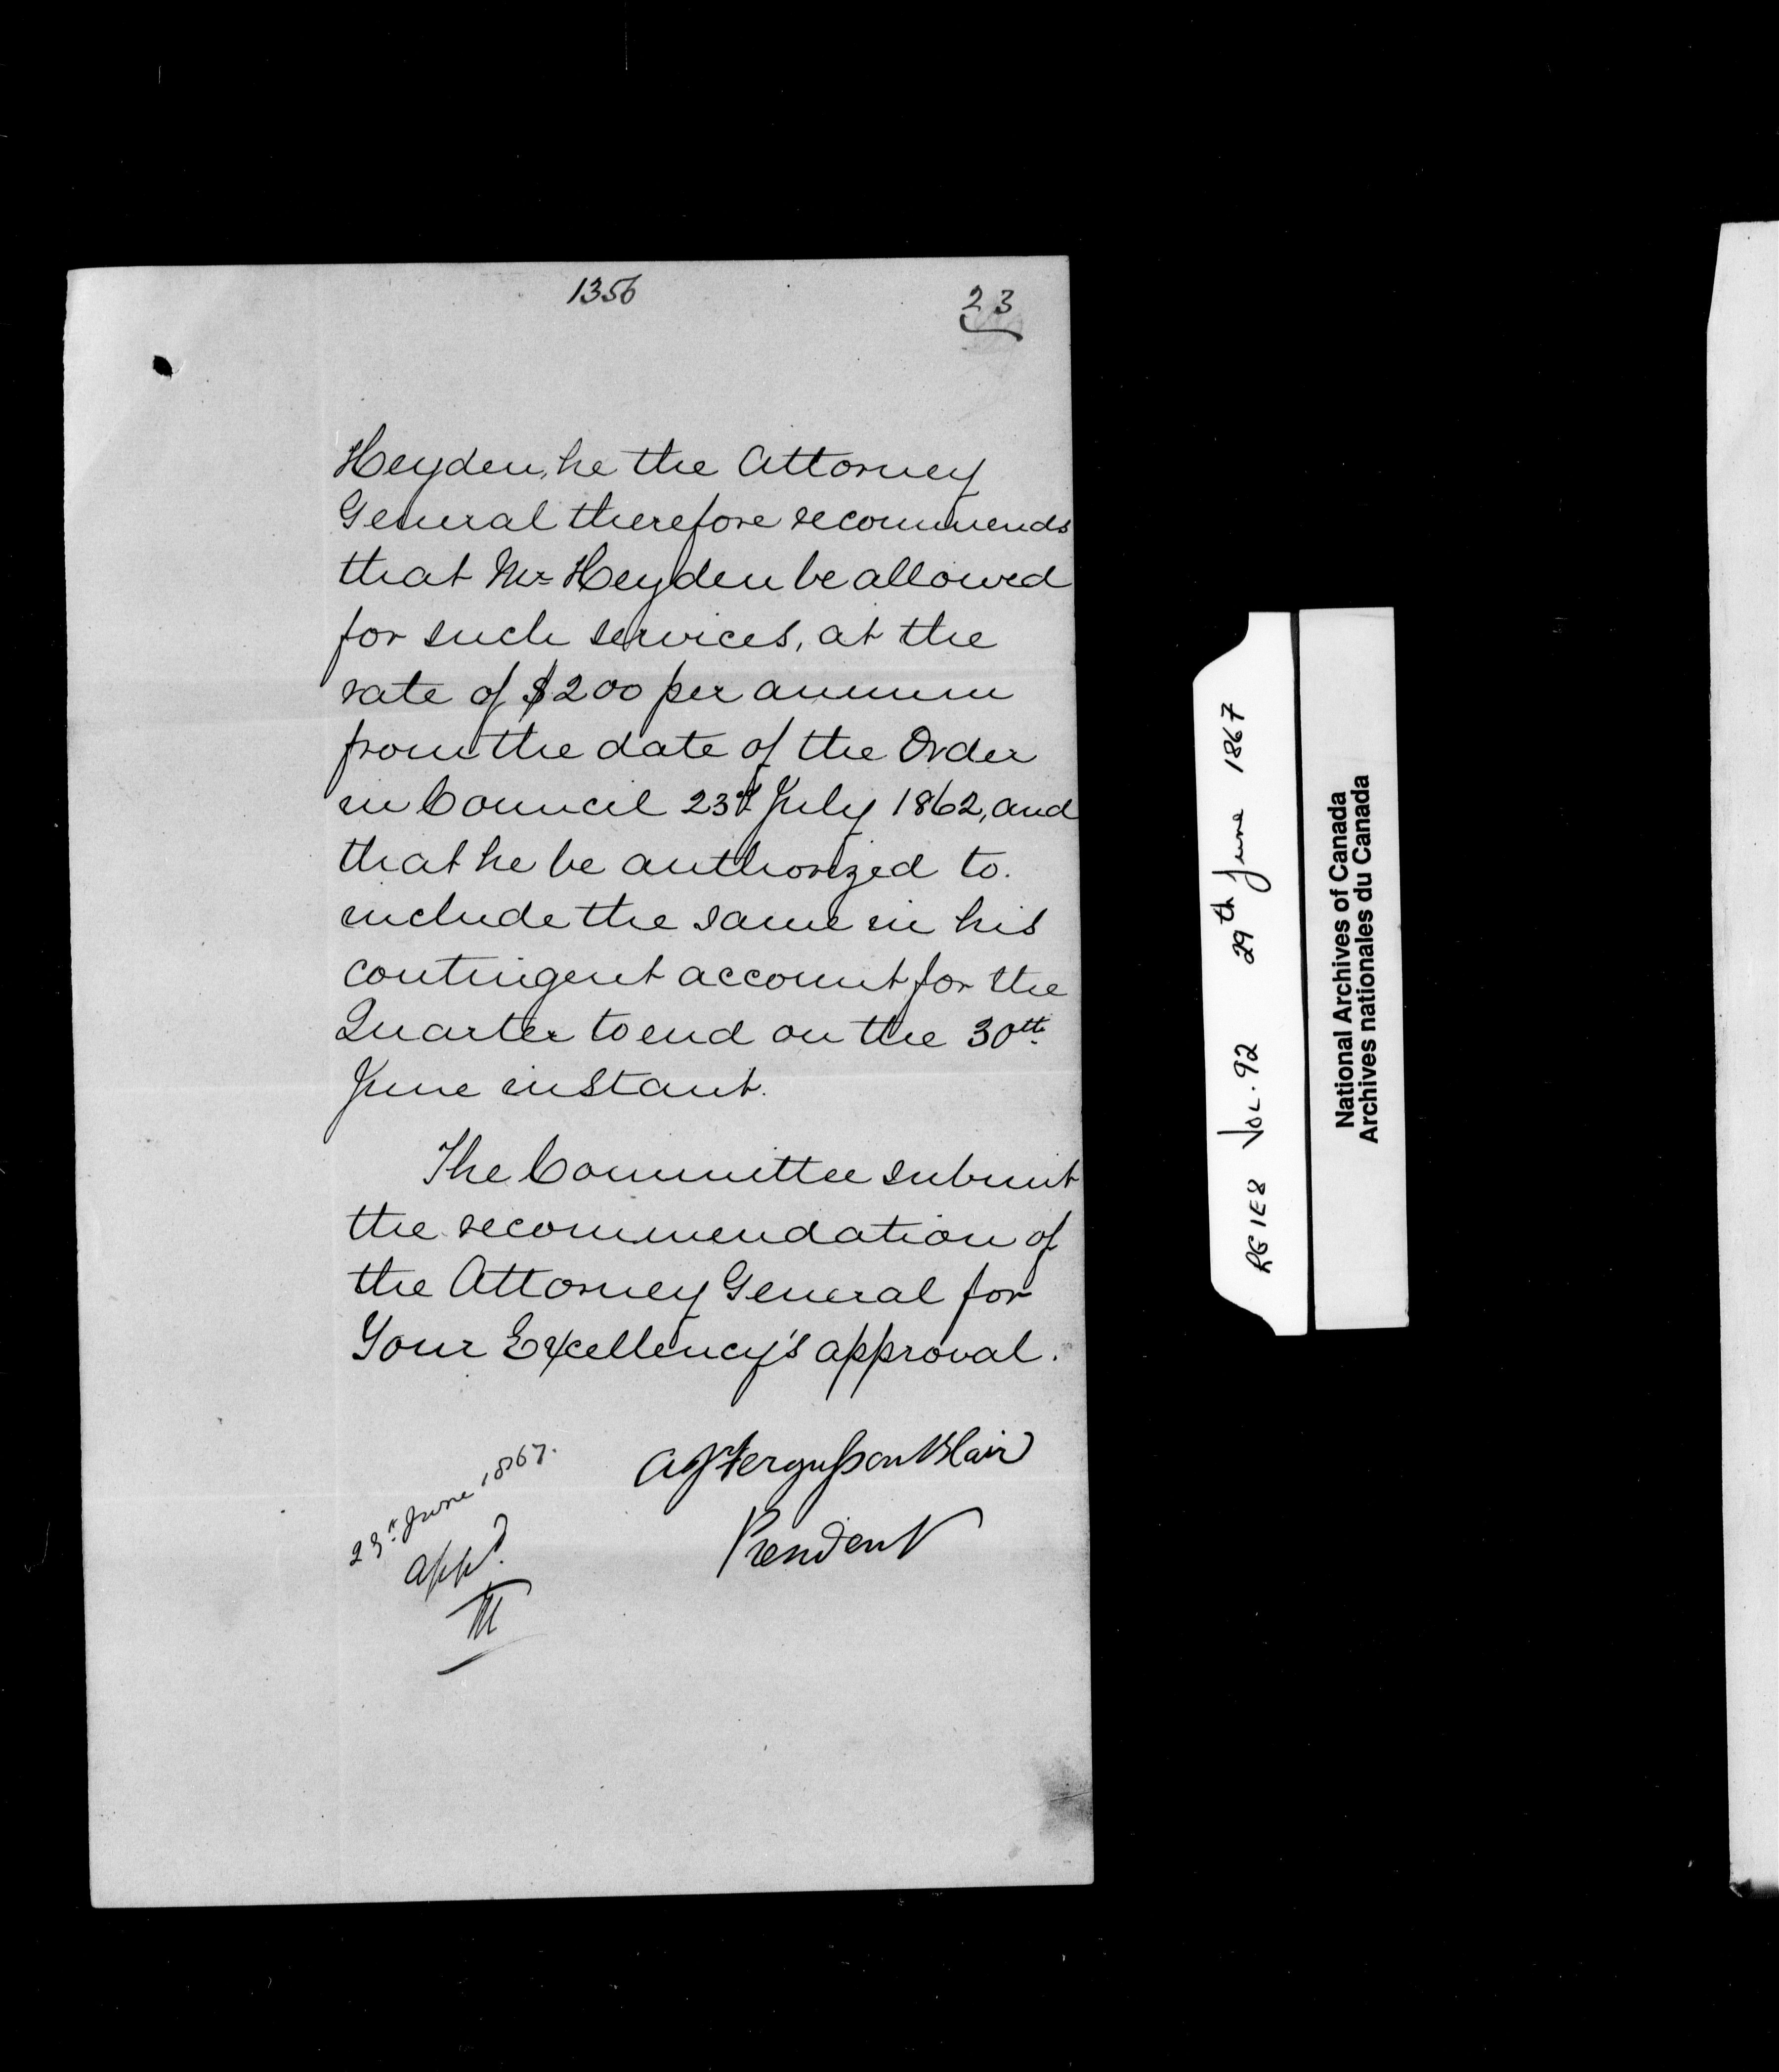 1356
23
Heyden, he the Attorney
General therefore recommends
that Mr Heyden be allowed
for such services, at the
rate of $200 per annum
from the date of the Order
in Council 23d July 1862, and
that he be authorized to.
include the same in his
contingent account for the
Quarter to end on the 30th
June instant.
The Committee submit
the recommendation of
the Attorney General for
Your Excellency's approval.
A J Fergusson Blair
President
June 1867.
appd.
RG 1E8 VOL. 92 29th June 1867
National Archives of Canada
Archives nationales du Canada